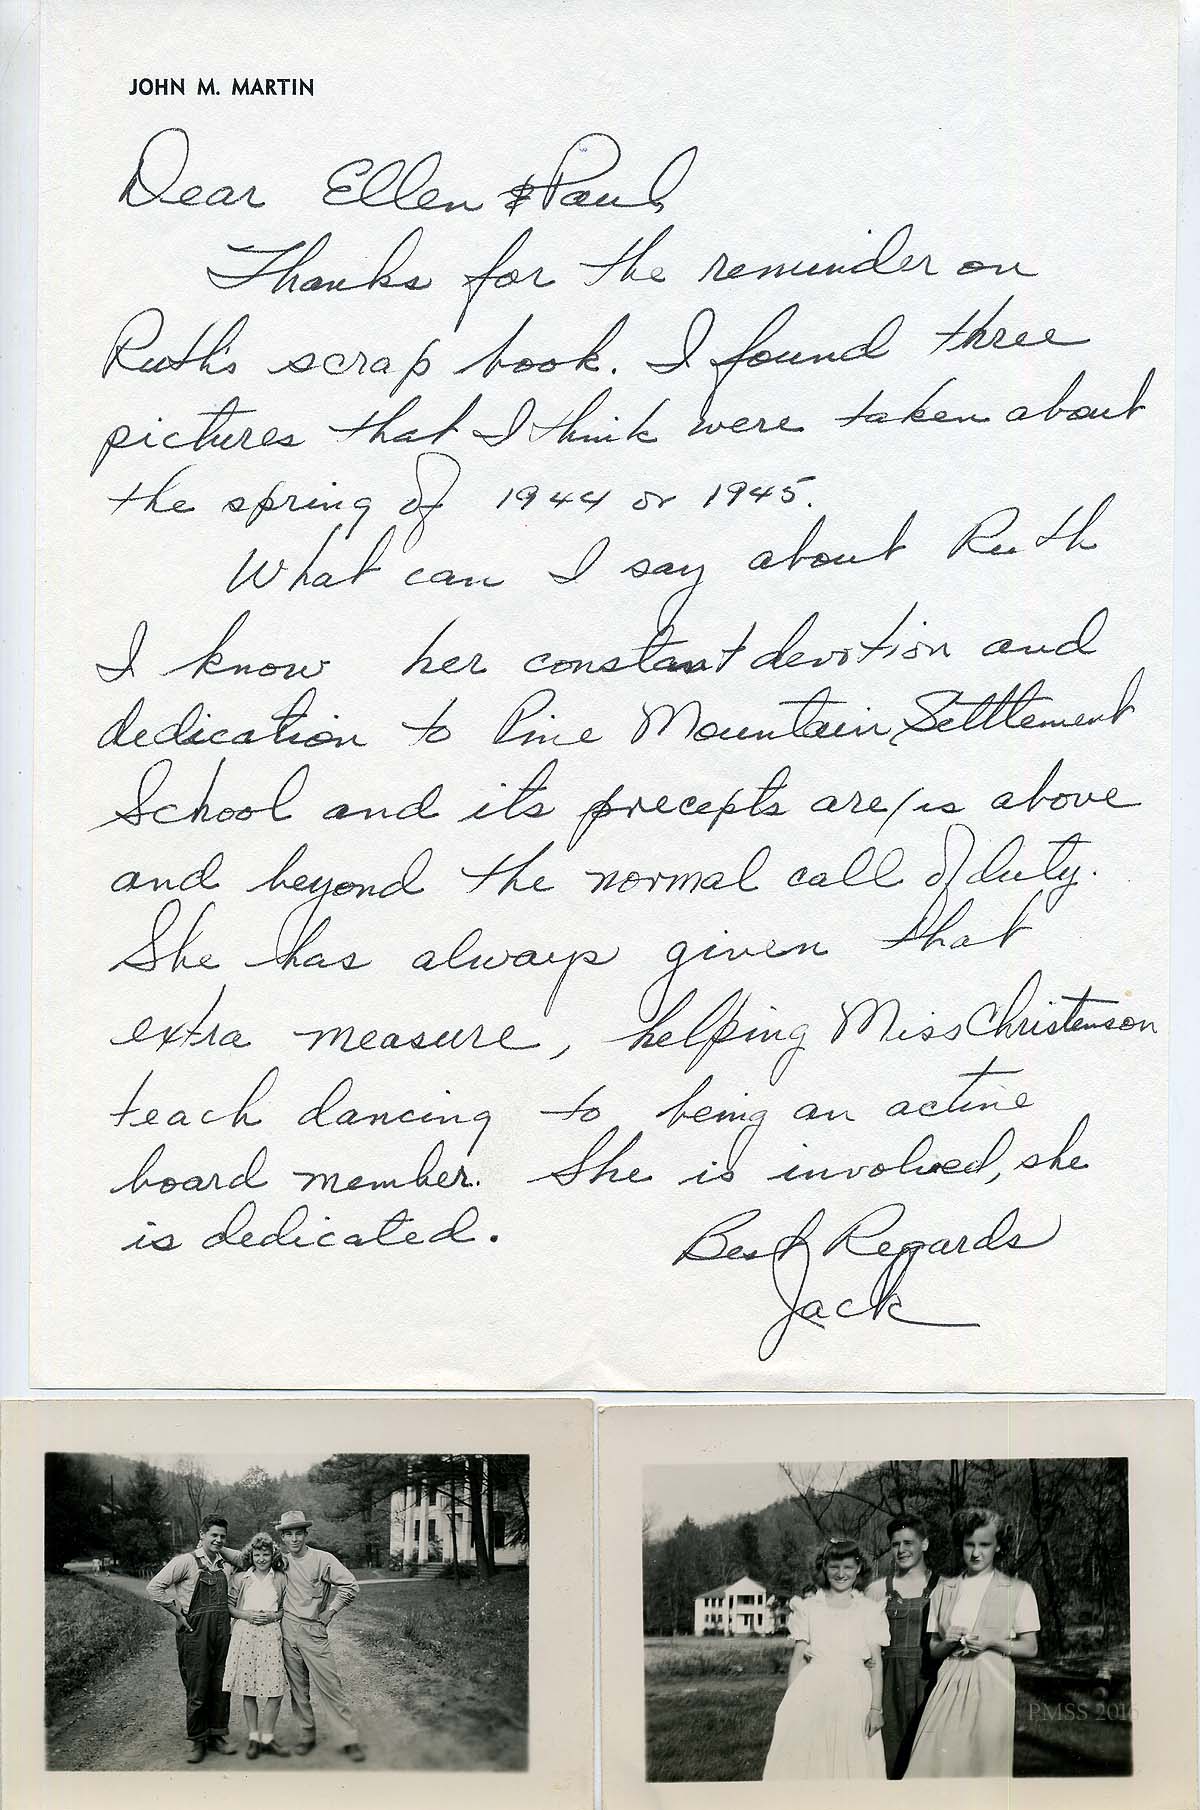 JOHN M. MARTIN
Dear Ellen & Paul,
Thanks for the reminder on
Ruth's scrap book. I found three
pictures that I think were taken about
the spring of 1944 or 1945.
What can I say about Ruth
I know her constant devotion and
dedication to Pine Mountain Settlement
School and its precepts are/is above
and beyond the normal call of duty.
She has always given that
extra measure, helping Miss Christenson
teach dancing to being an active
board member. She is involved, she
is dedicated.
Best Regards
Jack
PMSS 2016